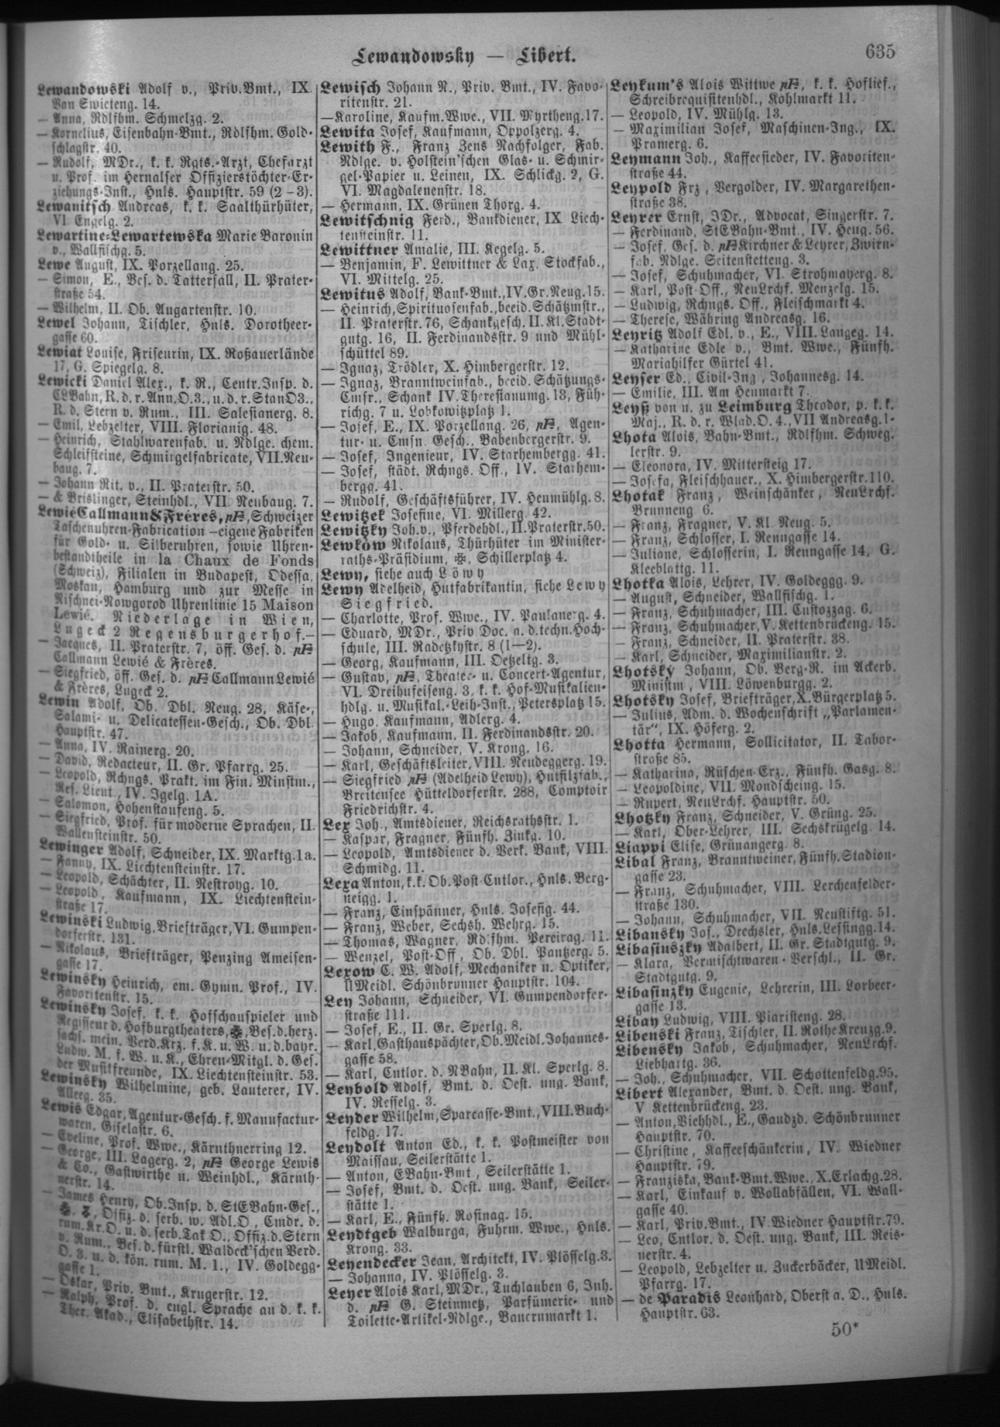 Lewandowsky — Libert.
635
Lewandowski Adolf v., Priv.Bmt., IX.
Van Swieteng. 14.
— Anna, Rdlfshm. Schmelzg. 2.
— Kornelius, Eisenbahn-Bmt., Rdlfshm. Gold-
schlagstr. 40.
— Rudolf, MDr., k. k. Rgts.-Arzt, Chefarzt
u. Prof. im Hernalser Offizierstöchter-Er-
ziehungs-Inst., Hnls. Hauptstr. 59 (2—3).
Lewanitsch Andreas, k. k. Saalthürhüter,
VI. Engelg. 2.
Lewartine-Lewartewska Marie Baronin
v., Wallfischg. 5.
Lewe August, IX. Porzellang. 25.
— Simon, E., Bes. d. Tattersall, II. Prater-
straße 54.
— Wilhelm, II. Ob. Augartenstr. 10.
Lewel Johann, Tischler, Hnls. Dorotheer-
gasse 60.
Lewiat Louise, Friseurin, IX. Roßauerlände
17, G. Spiegelg. 8.
Lewicki Daniel Alex., k. R., Centr.Insp. d.
CLBahn, R. d. r. Ann.O.3., u. d. r. StanO3.,
R. d. Stern v. Rum., III. Salesianerg. 8.
— Emil, Lebzelter, VIII. Florianig. 48.
— Heinrich, Stahlwarenfab. u. Ndlge. chem.
Schleifsteine, Schmirgelfabricate, VII.Neu-
baug. 7.
— Johann Rit. v., II. Praterstr. 50.
— & Brislinger, Steinhdl., VII. Neubaug. 7.
Lewié Callmann & Frères, pF, Schweizer
Taschenuhren-Fabrication — eigene Fabriken
für Gold- u. Silberuhren, sowie Uhren-
bestandtheile in la Chaux de Fonds
(Schweiz), Filialen in Budapest, Odessa,
Moskau, Hamburg und zur Messe in
Nischnei-Nowgorod Uhrenlinie 15 Maison
Lewié. Niederlage in Wien,
Lugeck 2 Regensburgerhof.—
— Jacques, II. Praterstr. 7, öff. Ges. d. pF
Callmann Lewié & Frères.
— Siegfried, öff. Ges. d. pF Callmann Lewié
& Frères, Lugeck 2.
Lewin Adolf, Ob. Dbl. Neug. 28, Käse-,
Salami- u. Delicatessen-Gesch., Ob. Dbl.
Hauptstr. 47.
— Anna, IV. Rainerg. 20.
— David, Redacteur, II. Gr. Pfarrg. 25.
— Leopold, Rchngs. Prakt. im Fin. Minstm.,
Res. Lieut., IV. Igelg. 1A.
— Salomon, Hohenstaufeng. 5.
— Siegfried, Prof. für moderne Sprachen, II.
Wallensteinstr. 50.
Lewinger Adolf, Schneider, IX. Marktg.1a.
— Fanny, IX. Liechtensteinstr. 17.
— Leopold, Schächter, II. Nestroyg. 10.
— Leopold, Kaufmann, IX. Liechtenstein-
straße 17.
Lewinski Ludwig, Briefträger, VI. Gumpen-
dorferstr. 131.
— Nikolaus, Briefträger, Penzing Ameisen-
gasse 17.
Lewinsky Heinrich, em. Gymn. Prof., IV.
Favoritenstr. 15.
Lewinsky Josef, k. k. Hofschauspieler und
Regisseur d. Hofburgtheaters, Bes.d.herz.
sächs. mein. Verd.Krz. f. K. u. W. u. d. bayr.
Ludw. M. f. W. u. K., Ehren-Mitgl. d. Ges.
der Musikfreunde, IX. Liechtensteinstr. 53.
Lewinsky Wilhelmine, geb. Lauterer, IV.
Alleeg. 35.
Lewis Edgar, Agentur-Gesch. f. Manufactur-
waren, Giselastr. 6.
— Eveline, Prof. Wwe., Kärnthnerring 12.
— George, III. Lagerg. 2, pF George Lewis
& Co., Gastwirthe u. Weinhdl., Kärnth-
nerstr. 14.
— James Henry, Ob.Insp. d. StEBahn-Ges.,
Offiz. d. serb. w. Adl.O., Cmdr. d.
rum. Kr.O. u. d. serb. Tak O., Offiz.d.Stern
v. Rum., Bes. d. fürstl. Waldeck'schen Verd.
O. 3. u. d. kön. rum. M. 1., IV. Goldegg-
gasse 1.
— Oskar, Priv. Bmt., Krugerstr. 12.
— Ralph, Prof. d. engl. Sprache an d. k. k.
Ther. Akad., Elisabethstr. 14.
Lewisch Johann N., Priv. Bmt., IV. Favo-
ritenstr. 21.
— Karoline, Kaufm. Wwe., VII. Myrtheng. 17.
Lewita Josef, Kaufmann, Oppolzerg. 4.
Lewith F., Franz Zens Nachfolger, Fab.
Ndlge. v. Holstein'schen Glas- u. Schmir-
gel-Papier u. Leinen, IX. Schlickg. 2, G.
VI. Magdalenenstr. 18.
— Hermann, IX. Grünen Thorg. 4.
Lewitschnig Ferd., Bankdiener, IX Liech-
tensteinstr. 11.
Lewittner Amalie, III. Kegelg. 5.
— Benjamin, F. Lewittner & Lax, Stockfab.,
VI. Mittelg. 25.
Lewitus Adolf, Bank-Bmt., IV. Gr. Neug. 15.
— Heinrich, Spirituosenfab., beeid. Schätzmstr.,
II. Praterstr. 76, Schankgesch. II. Kl. Stadt-
gutg. 16, II. Ferdinandsstr. 9 und Mühl-
schüttel 89.
— Ignaz, Trödler, X. Himbergerstr. 12.
— Ignaz, Branntweinfab., beeid. Schätzungs-
Cmsr., Schank IV. Theresianumg. 13, Füh-
richg. 7 u. Lobkowitzplatz 1.
— Josef, E., IX. Porzellang. 26, pF, Agen-
tur- u. Cmsn. Gesch., Babenbergerstr. 9.
— Josef, Ingenieur, IV. Starhembergg. 41.
— Josef, städt. Rchngs. Off., IV. Starhem-
bergg. 41.
— Rudolf, Geschäftsführer, IV. Heumühlg. 8.
Lewitzek Josefine, VI. Millerg. 42.
Lewitzky Joh.v., Pferdehdl., II.Praterstr.50.
Lewkow Nikolaus, Thürhüter im Minister-
raths-Präsidium, Schillerplatz 4.
Lewy, siehe auch Löwy
Lewy Adelheid, Hutfabrikantin, siehe Lewy
Siegfried.
— Charlotte, Prof. Wwe., IV. Paulanerg. 4.
— Eduard, MDr., Priv. Doc. a. d. techn. Hoch-
schule, III. Radetzkystr. 8 (1—2).
— Georg, Kaufmann, III. Oetzeltg. 3.
— Gustav, pF, Theater- u. Concert-Agentur,
VI. Dreihufeiseng. 3, k. k. Hof-Musikalien-
hdlg. u. Musikal.-Leih-Inst., Petersplatz 15.
— Hugo, Kaufmann, Adlerg. 4.
— Jakob, Kaufmann, II. Ferdinandsstr. 20.
— Johann, Schneider, V. Krong. 16.
— Karl, Geschäftsleiter, VIII. Neudeggerg. 19.
— Siegfried pF (Adelheid Lewy), Hutfilzfab.,
Breitensee Hütteldorferstr. 288, Comptoir
Friedrichstr. 4.
Lex Joh., Amtsdiener, Reichsrathsstr. 1.
— Kaspar, Fragner, Fünfh. Zinkg. 10.
— Leopold, Amtsdiener d. Verk. Bank, VIII.
Schmidg. 11.
Lexa Anton, k.k. Ob.Post-Cntlor., Hnls. Berg-
steigg. 1.
— Franz, Einspänner, Hnls. Josefig. 44.
— Franz, Weber, Sechsh. Wehrg. 15.
— Thomas, Wagner, Rdlfshm. Pereirag. 11.
— Wenzel, Post-Off., Ob. Dbl. Pantzerg. 5.
Lexow C. W. Adolf, Mechaniker u. Optiker,
UMeidl. Schönbrunner Hauptstr. 104.
Ley Johann, Schneider, VI. Gumpendorfer-
straße 111.
— Josef, E., II. Gr. Sperlg. 8.
— Karl, Gasthauspächter, Ob.Meidl. Johannes-
gasse 58.
— Karl, Cntlor. d. NBahn, II. Kl. Sperlg. 8.
Leybold Adolf, Bmt. d. Oest. ung. Bank,
IV. Resselg. 3.
Leyder Wilhelm, Sparcasse-Bmt., VIII. Buch-
feldg. 17.
Leydolt Anton Ed., k. k. Postmeister von
Maissau, Seilerstätte 1.
— Anton, EBahn-Bmt., Seilerstätte 1.
— Josef, Bmt. d. Oest. ung. Bank, Seiler-
stätte 1.
— Karl, E., Fünfh. Rosinag. 15.
Leydtgeb Walburga, Fuhrm. Wwe., Hnls.
Krong. 33.
Leyendecker Jean, Architekt, IV. Plösselg. 3.
— Johanna, IV. Plösselg. 3.
Leyer Alois Karl, MDr., Tuchlauben 6, Inh.
d. pF G. Steinmetz, Parfümerie- und
Toilette-Artikel-Ndlge., Bauernmarkt 1.
Leykum's Alois Wittwe pF, k. k. Hoflief.,
Schreibrequisitenhdl., Kohlmarkt 11.
— Leopold, IV. Mühlg. 13.
— Maximilian Josef, Maschinen-Ing., IX.
Pramerg. 6.
Leymann Joh., Kaffeesieder, IV. Favoriten-
straße 44.
Leypold Frz., Vergolder, IV. Margarethen-
straße 38.
Leyrer Ernst, JDr., Advocat, Singerstr. 7.
— Ferdinand, StEBahn-Bmt., IV. Heug. 56.
— Josef, Ges. d. pF Kirchner & Leyrer, Zwirn-
fab. Ndlge. Seitenstetteng. 3.
— Josef, Schuhmacher, VI. Strohmayerg. 8.
— Karl, Post-Off., NeuLrchf. Menzelg. 15.
— Ludwig, Rchngs. Off., Fleischmarkt 4.
— Therese, Währing Andreasg. 16.
Leyritz Adolf Edl. v., E., VIII. Langeg. 14.
— Katharine Edle v., Bmt. Wwe., Fünfh.
Mariahilfer Gürtel 41.
Leyser Ed., Civil-Ing., Johannesg. 14.
— Emilie, III. Am Heumarkt 7.
Leyß von u. zu Leimburg Theodor, p. k. k.
Maj., R. d. r. Wlad.O. 4., VII Andreasg. 1.
Lhota Alois, Bahn-Bmt., Rdlfshm. Schweg-
lerstr. 9.
— Eleonora, IV. Mittersteig 17.
— Josefa, Fleischhauer., X. Himbergerstr. 110.
Lhotak Franz, Weinschänker, NeuLrchf.
Brunneng. 6.
— Franz, Fragner, V. Kl. Neug. 5.
— Franz, Schlosser, I. Renngasse 14.
— Juliane, Schlosserin, I. Renngasse 14, G.
Kleeblattg. 11.
Lhotka Alois, Lehrer, IV. Goldeggg. 9.
— August, Schneider, Wallfischg. 1.
— Franz, Schuhmacher, III. Custozzag. 6.
— Franz, Schuhmacher, V. Kettenbrückeng. 15.
— Franz, Schneider, II. Praterstr. 38.
— Karl, Schneider, Maximilianstr. 2.
Lhotsky Johann, Ob. Berg-R. im Ackerb.
Ministm., VIII. Löwenburgg. 2.
Lhotsky Josef, Briefträger, X. Bürgerplatz 5.
— Julius, Adm. d. Wochenschrift „Parlamen-
tär", IX. Höferg. 2.
Lhotta Hermann, Sollicitator, II. Tabor-
straße 85.
— Katharina, Rüschen-Erz., Fünfh. Gasg. 8.
— Leopoldine, VII. Mondscheing. 15.
— Rupert, NeuLrchf. Hauptstr. 50.
Lhotzky Franz, Schneider, V. Grüng. 25.
— Karl, Ober-Lehrer, III. Sechskrügelg. 14.
Liappi Elise, Grünangerg. 8.
Libal Franz, Branntweiner, Fünfh. Stadion-
gasse 23.
— Franz, Schuhmacher, VIII. Lerchenfelder-
straße 130.
— Johann, Schuhmacher, VII. Neustiftg. 51.
Libansky Jos., Drechsler, Hnls. Lessingg. 14.
Libasinszky Adalbert, II. Gr. Stadtgutg. 9.
— Klara, Vermischtwaren-Verschl., II. Gr.
Stadtgutg. 9.
Libasinzky Eugenie, Lehrerin, III. Lorbeer-
gasse 13.
Libay Ludwig, VIII. Piaristeng. 28.
Libenski Franz, Tischler, II. Rothe Kreuzg. 9.
Libensky Jakob, Schuhmacher, NeuLrchf.
Liebhartg. 36.
— Joh., Schuhmacher, VII. Schottenfeldg. 95.
Libert Alexander, Bmt. d. Oest. ung. Bank,
V. Kettenbrückeng. 23.
— Anton, Viehhdl., E., Gaudzd. Schönbrunner
Hauptstr. 70.
— Christine, Kaffeeschänkerin, IV. Wiedner
Hauptstr. 79.
— Franziska, Bank-Bmt. Wwe., X. Erlachg. 28.
— Karl, Einkauf v. Wollabfällen, VI. Wall-
gasse 40.
— Karl, Priv. Bmt., IV. Wiedner Hauptstr. 79.
— Leo, Cntlor. d. Oest. ung. Bank, III. Reis-
nerstr. 4.
— Leopold, Lebzelter u. Zuckerbäcker, UMeidl.
Pfarrg. 17.
— de Paradis Leonhard, Oberst a. D., Hnls.
Hauptstr. 63.
50*